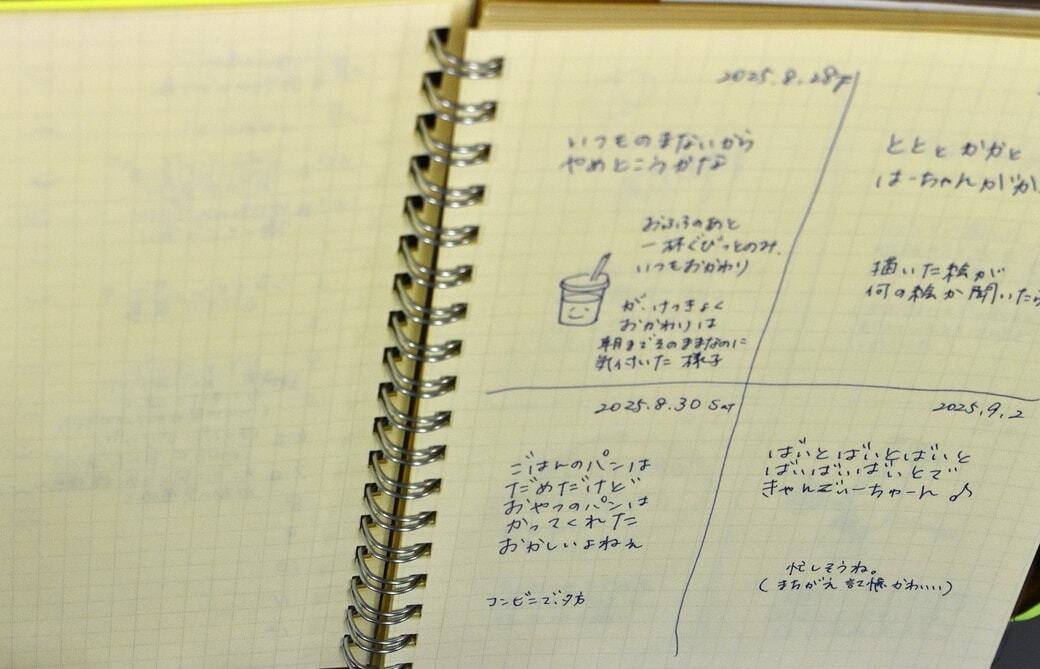 2025.8.28
いつものまないから
やめところかな
おふろのあと
一杯ぐびっとのみ、
いつもおかわり
が、けっきょく
おかわりは
朝までそのままなのに
気付いた様子
とととかかと
ばーちゃんが
描いた絵が
何の絵か聞いたら
2025.8.30 Sat
ごはんのパンは
だめだけど
おやつのパンは
かってくれた
おかしいよねぇ
コンビニで、夕方
2025.9.2
ばいとばいとばいと
ばいばいばいとで
きゃんでぃーちゃーん♪
忙しそうね。
(まちがえ記憶かわいい)